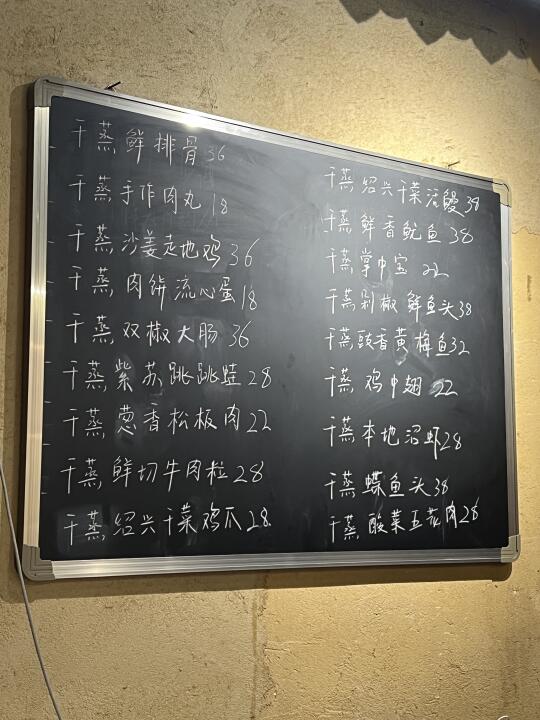 干蒸鲜排骨36
干蒸手作肉丸18
干蒸沙姜走地鸡36
干蒸肉饼流心蛋18
干蒸双椒大肠36
干蒸紫苏跳跳蛙28
干蒸葱香松板肉22
干蒸鲜切牛肉粒28
干蒸绍兴干菜鸡爪28
干蒸绍兴干菜活鳗38
干蒸鲜香鱿鱼38
干蒸掌中宝22
干蒸剁椒鲜鱼头38
干蒸豉香黄梅鱼32
干蒸鸡中翅22
干蒸本地沼虾28
干蒸鲽鱼头38
干蒸酸菜五花肉28